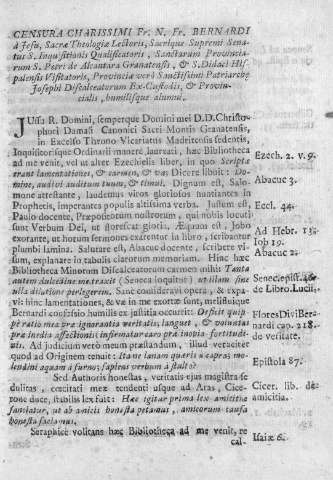 CENSURA CHARISSIMI Fr. N. Fr. BERNARDI
à Jesu, Sacræ Theologiæ Lectoris, Sacrique Supremi Sena-
tus S. Inquisitionis Qualificatoris, Sanctarum Provincia-
rum S. Petri de Alcantara Granatensis, & S. Didaci His-
palensis Visitatoris, Provinciæ verò Sanctissimi Patriarchæ
Josephi Discalceatorum Ex-Custodis, & Provin-
cialis, humilisque alumni.
JUssu R. Domini, semperque Domini mei D.D. Christo-
phori Damasi Canonici Sacri Montis Granatensis,
in Excelso Throno Vicariatus Madritensis sedentis,
Inquisitorisque Ordinarii munere laureati, hæc Bibliotheca
ad me venit, vel ut alter Ezechielis liber, in quo Scriptæ
erant lamentationes, & carmen, & væ: Dicere libuit: Do-
mine, audivi auditum tuum, & timui. Dignum est, Salo-
mone attestante, laudemus viros gloriosos nuntiantes in
Prophetis, imperantes populis altissima verba. Justum est,
Paulo docente, Præpositorum nostrorum, qui nobis locuti
sunt Verbum Dei, ut flores­cat gloria. Æquum est, Jobo
exorante, ut horum sermones exarentur in libro, scribantur
plumbi lamina. Salutare est, Abacuc docente, scribere vi-
sum, explanare in tabulis clarorum memoriam. Hinc hæc
Bibliotheca Minorum Discalceatorum carmen mihi: Tanta
autem dulcedine me traxit (Seneca inquit) ut illum sine
ulla dilatione perlegerem. Sanè consideravi opera, & expa-
vi: hinc lamentationes, & væ in me exortæ sunt, mellifluique
Bernardi confessio humilis ex justitia occurrit: Desicit quip-
pè ratio mea præ ignorantia veritatis, languet, & voluntas
præ inedia affectionis infirmatur caro præ inopia fortitudi-
nis. Ad Judicium verò meum præstandum, illud veraciter
quod ad Originem tenuit: Ita ne lanam quæris a capras, mo-
lendini aquam à furno, sapiens verbum à stulto?
Sed Authoris honestas, veritatis ejus magistra se-
dulitas, excitati mei tendenti usque ad Aras, Cice-
rone duce, stabilis lex fuit: Hæc igitur prima lex amicitiæ
sanciatur, ut ab amicis honesta petamus, amicorum causa
honesta faciamus.
Seraphicè volitans hæc Bibliotheca ad me venit, re
cal-
Ezech. 2. v. 9.
Abacuc 3.
Eccl. 44.
Ad Hebr. 13.
Iob 19.
Abacuc 2.
Senec. epist. 46.
de Libro. Lucii.
Flores Divi Ber-
nardi cap. 218.
de veritate.
Epistola 87.
Cicer. lib. de
amicitia.
Isaiæ 6.